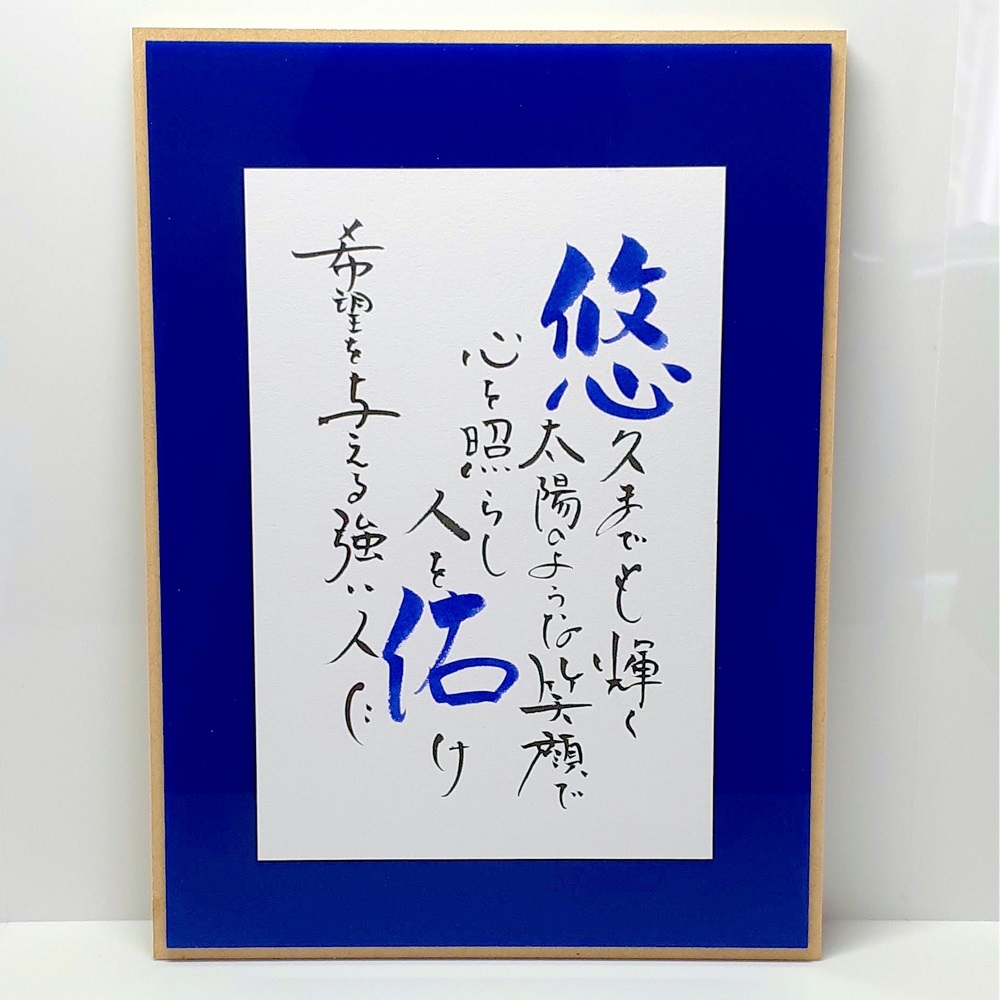 悠久までも輝く
太陽のような笑顔で
心を照らし
人を佑け
希望を与える強い人に